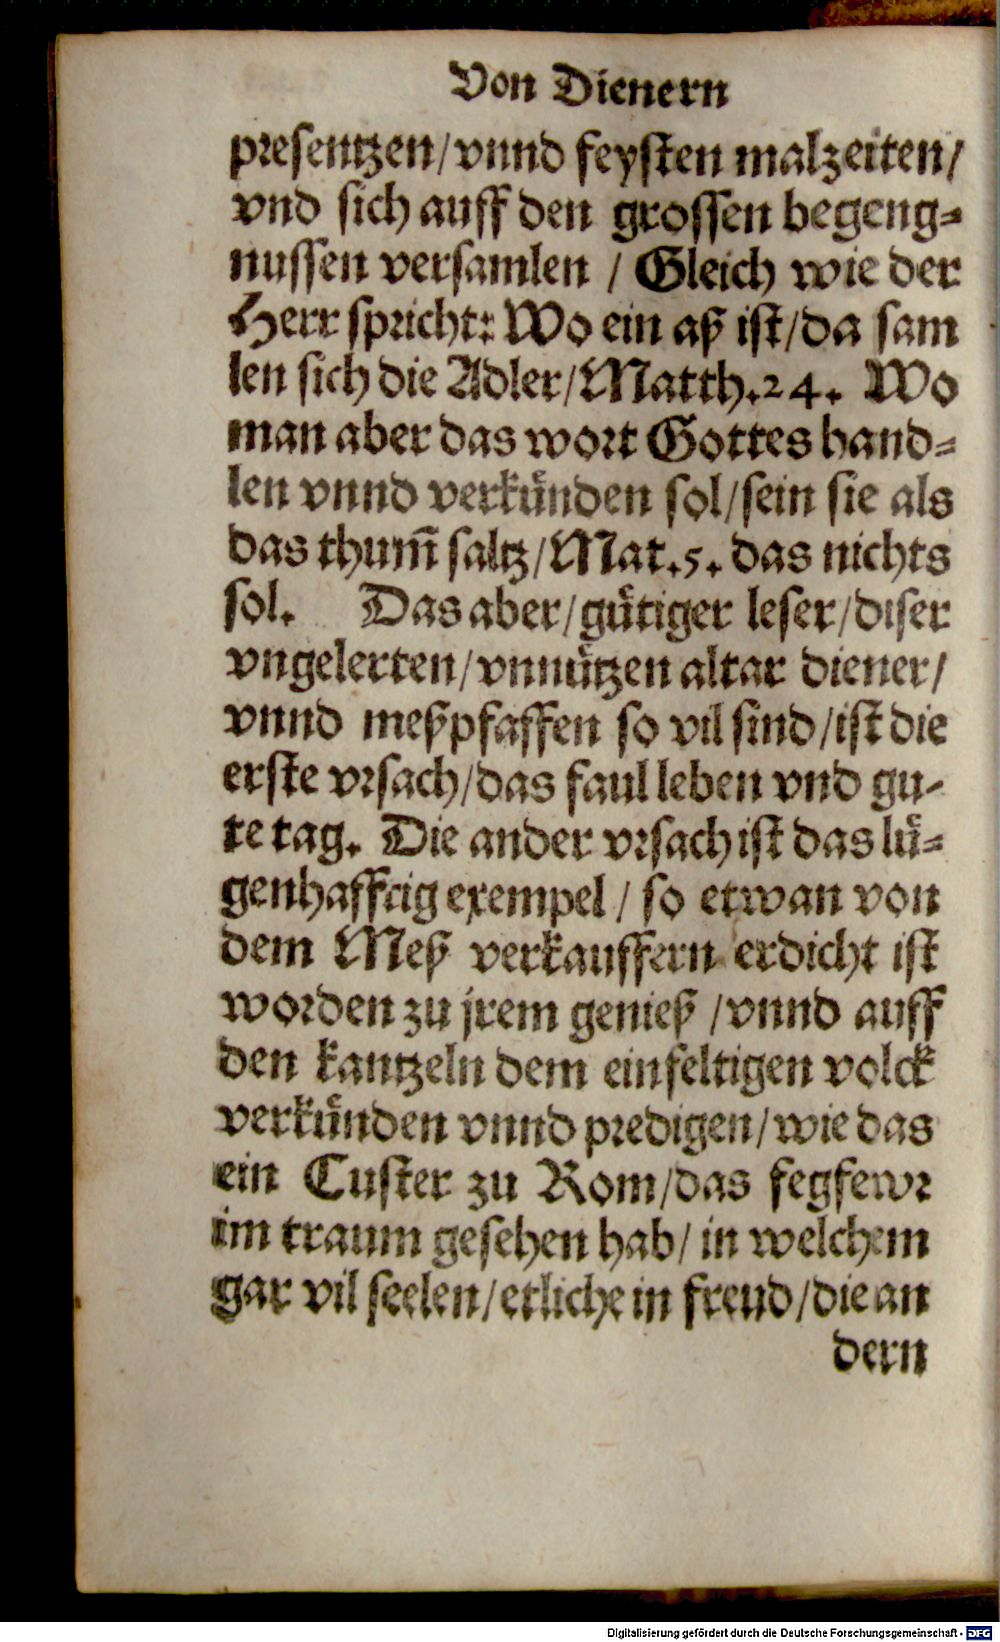 Von Dienern
presentzen/vnnd feysten malzeiten/
vnd sich auff den grossen begeng=
nussen versamlen / Gleich wie der
Herr spricht: Wo ein aß ist/da sam
len sich die Adler/Matth.24. Wo
man aber das wort Gottes hand=
len vnnd verkünden sol/sein sie als
das thum̃ saltz/Mat.5. das nichts
sol. Das aber/gütiger leser/diser
vngelerten/vnnützen altar diener/
vnnd meßpfaffen so vil sind/ist die
erste vrsach/das faul leben vnd gu-
te tag. Die ander vrsach ist das lü=
genhafftig exempel / so etwan von
dem Meß verkauffern erdicht ist
worden zu jrem genieß /vnnd auff
den kantzeln dem einfeltigen volck
verkünden vnnd predigen/wie das
ein Custer zu Rom/das fegfewr
im traum gesehen hab/ in welchem
gar vil seelen/etliche in freud/die an
dern
Digitalisierung gefördert durch die Deutsche Forschungsgemeinschaft - DFG